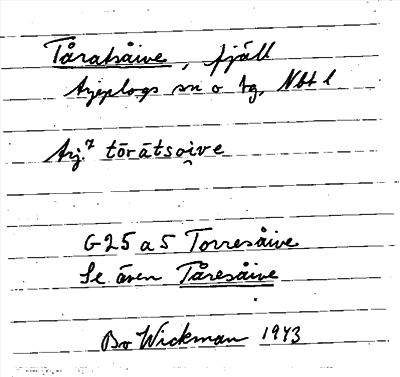 Tåratsåive, fjäll
Arjeplogs sn o tg, Nbt l
Arj.? tōrātsoi̭ve
G25 a 5 Torresåive
Se även Tåresåive
Bo Wickman 1943